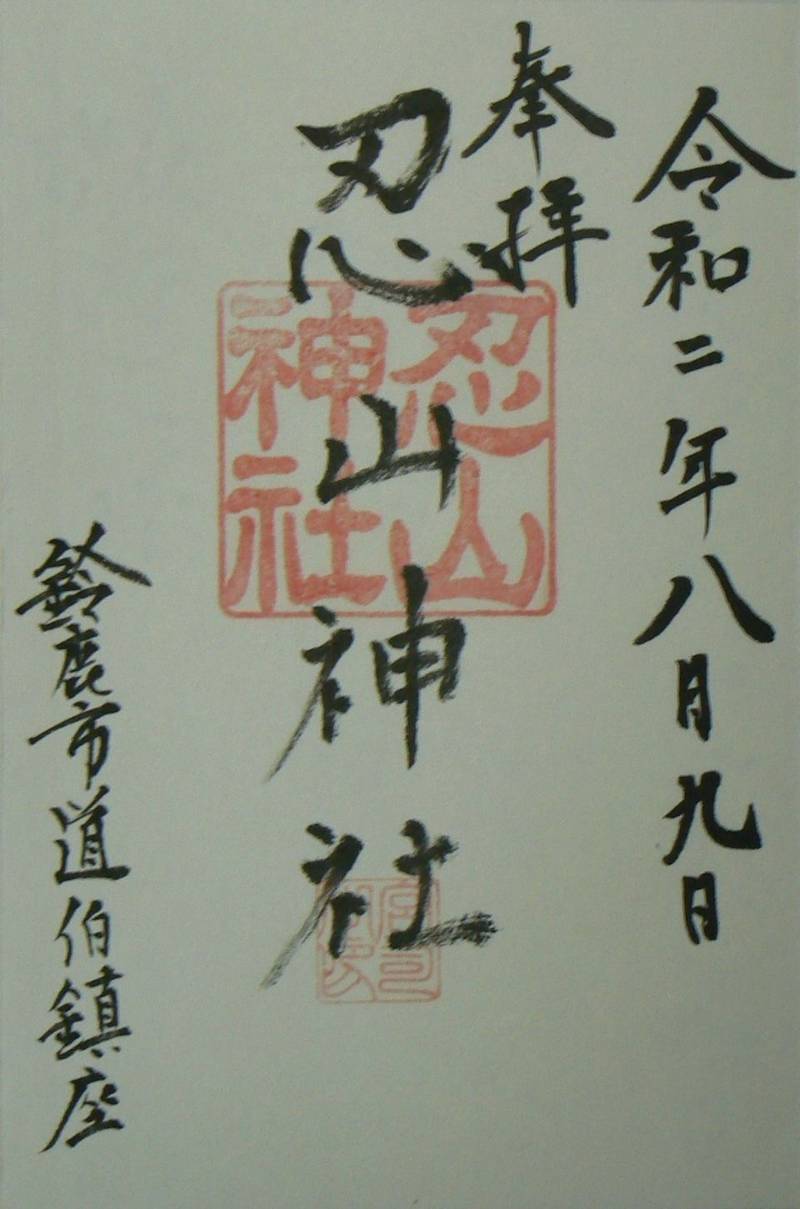 令和二年八月九日
奉拝
忍山神社
忍山
神社
鈴鹿市道伯鎮座